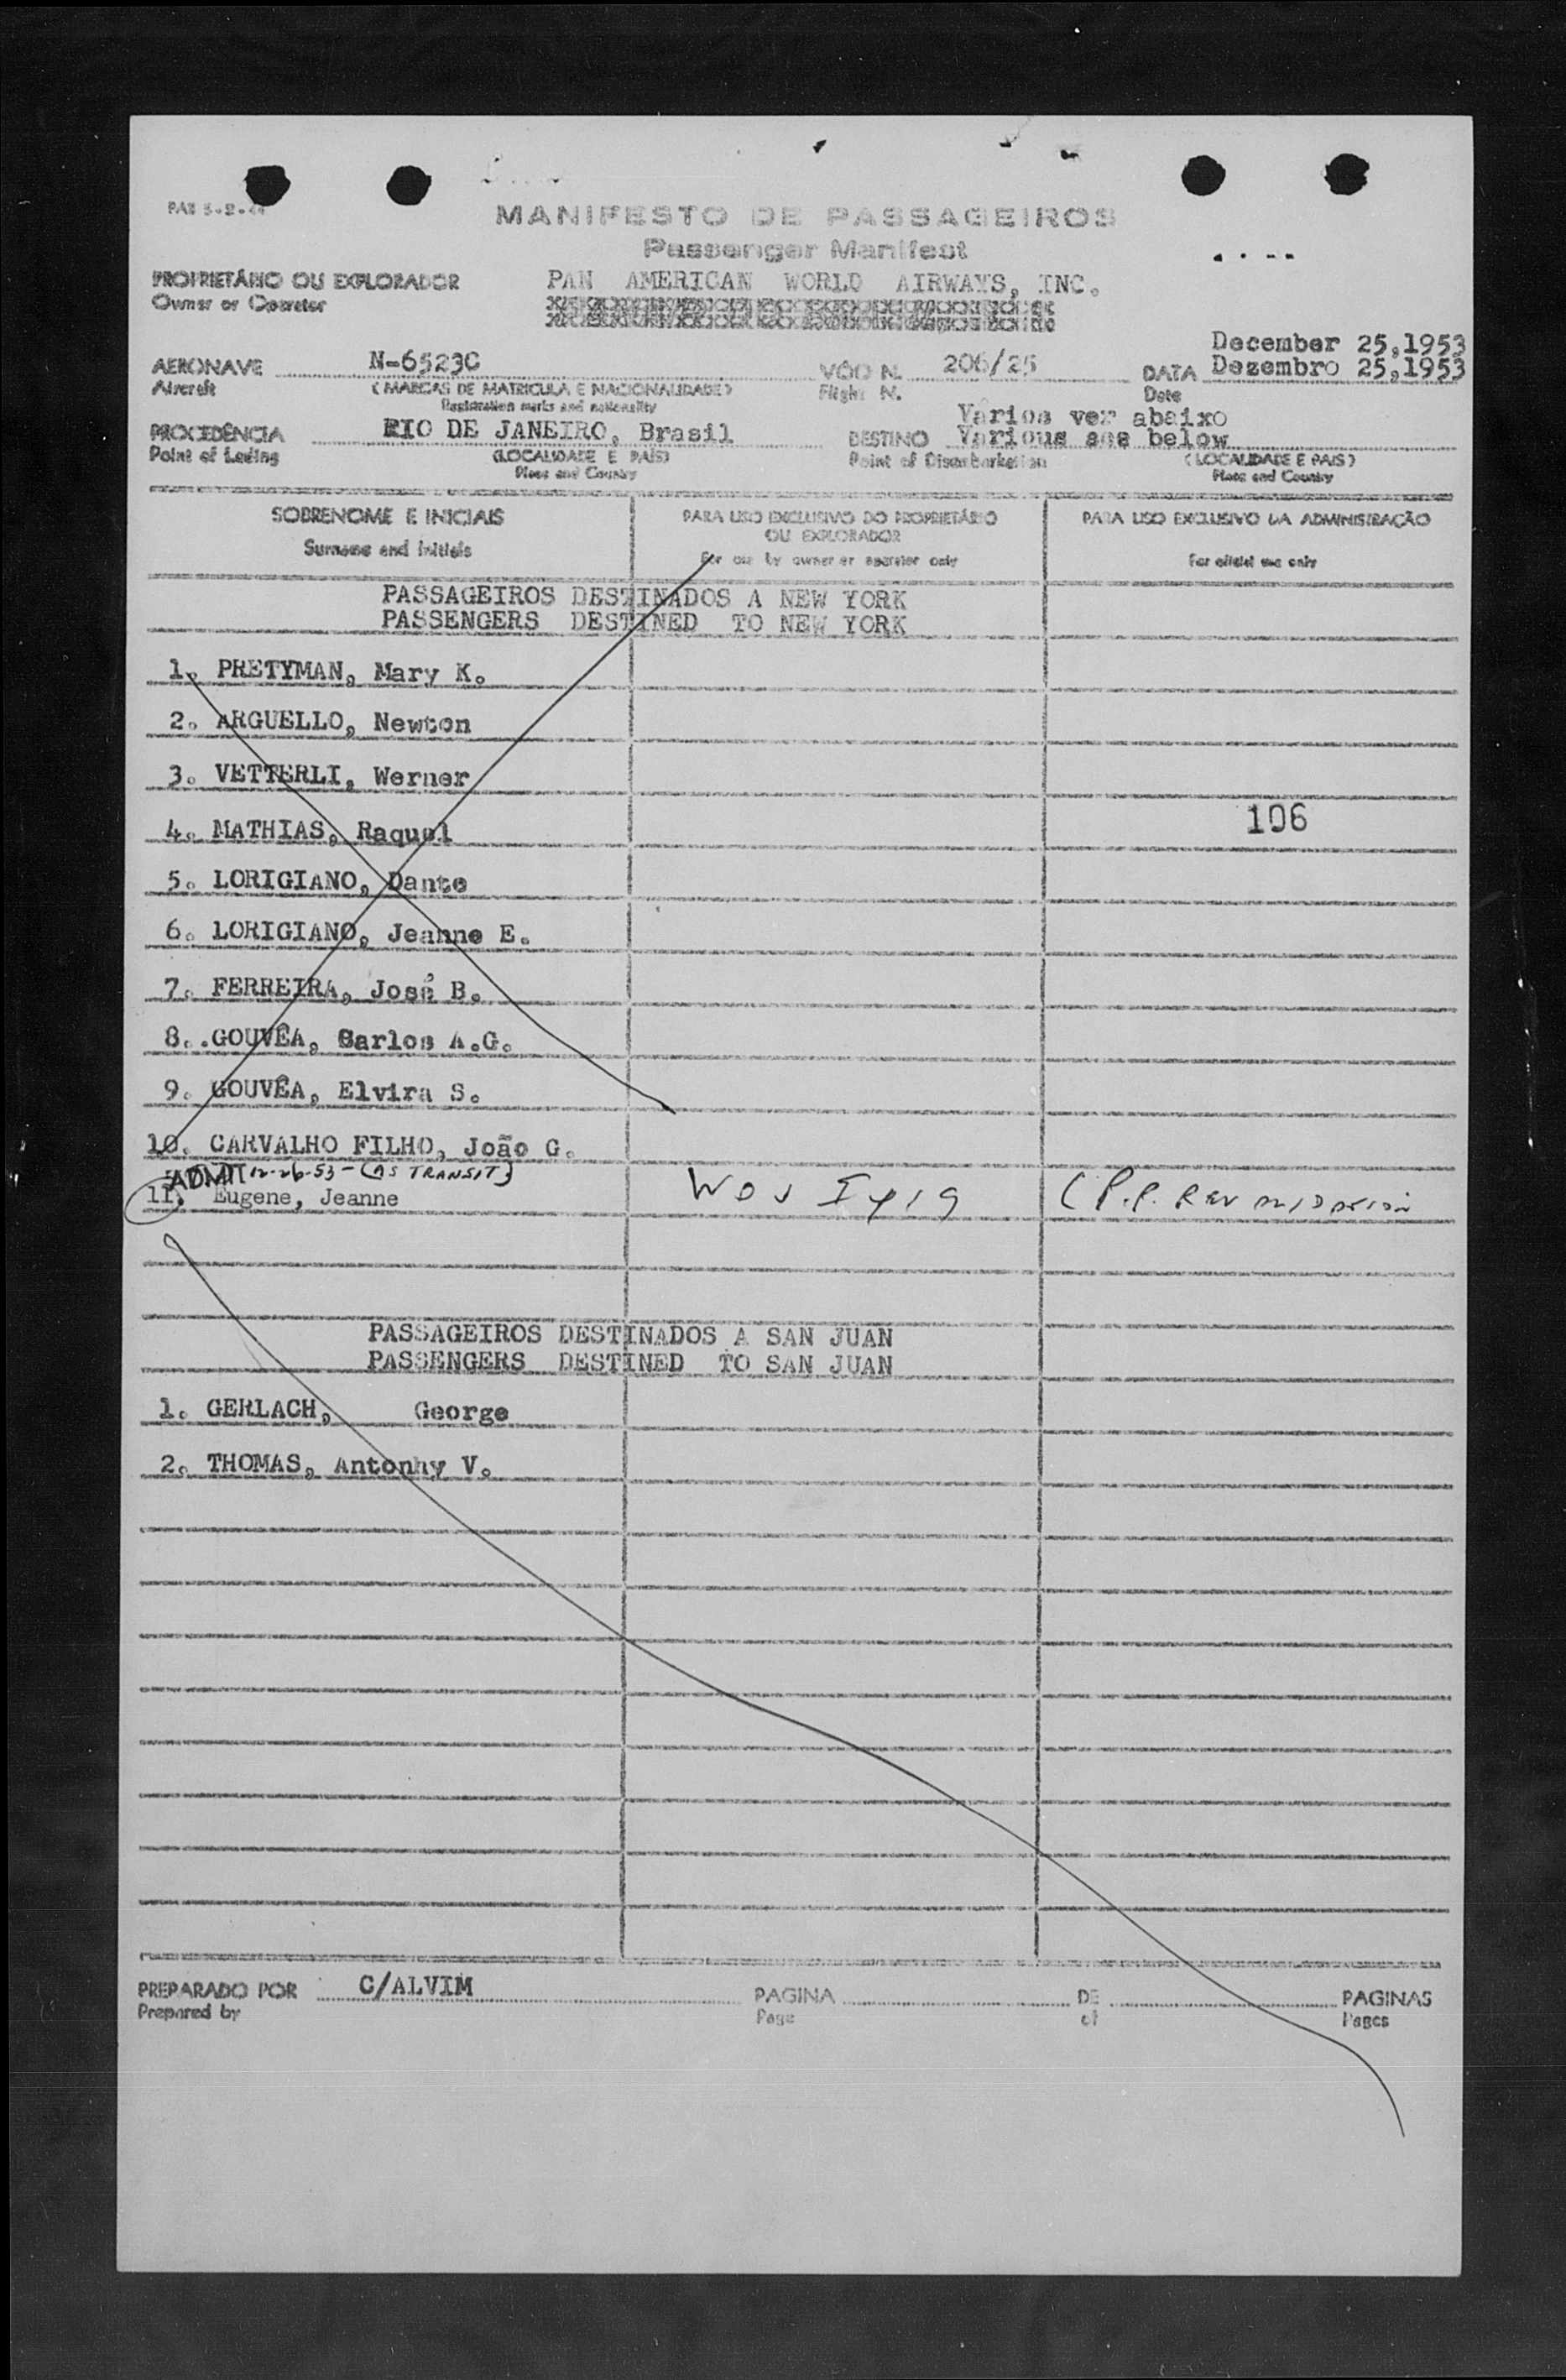 PAB 3-2-44
MANIFESTO DE PASSAGEIROS
Passenger Manifest
PROPRIETÁRIO OU EXPLORADOR PAN AMERICAN WORLD AIRWAYS, INC.
Owner or Operator
December 25,1953
AERONAVE N-6523C VÔO N. 206/25 DATA Dezembro 25,1953
Aircraft (MARCAS DE MATRICULA E NACIONALIDADE) Flight N. Date
Registration marks and nationality
Vários ver abaixo
PROCEDÊNCIA RIO DE JANEIRO, Brasil DESTINO Various see below
Point of Lading (LOCALIDADE E PAÍS) Point of Disembarkation (LOCALIDADE E PAIS)
Place and Country Place and Country
SOBRENOME E INICIAIS PARA USO EXCLUSIVO DO PROPRIETÁRIO PARA USO EXCLUSIVO DA ADMINISTRAÇÃO
OU EXPLORADOR
Surname and initials For use by owner or operator only For official use only
PASSAGEIROS DESTINADOS A NEW YORK
PASSENGERS DESTINED TO NEW YORK
1. PRETYMAN, Mary K.
2. ARGUELLO, Newton
3. VETTERLI, Werner
106
4. MATHIAS, Raquel
5. LORIGIANO, Dante
6. LORIGIANO, Jeanne E.
7. FERREIRA, José B.
8. GOUVÊA, Carlos A.G.
9. GOUVÊA, Elvira S.
10. CARVALHO FILHO, João G.
ADMIT 12-26-53-(AS TRANSIT)
11. Eugene, Jeanne (P.P. REV
PASSAGEIROS DESTINADOS A SAN JUAN
PASSENGERS DESTINED TO SAN JUAN
1. GERLACH, George
2. THOMAS, Antonhy V.
PREPARADO POR C/ALVIM PAGINA DE PAGINAS
Prepared by Page of Pages